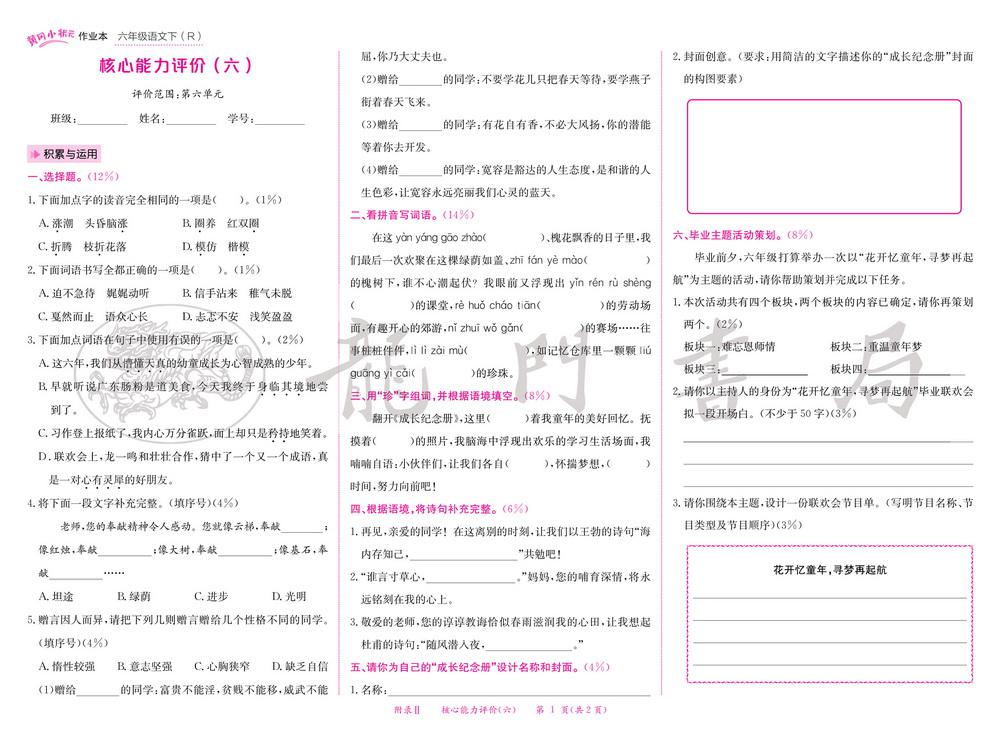 黄冈小状元 作业本 六年级语文下(R)
核心能力评价(六)
评价范围:第六单元
班级:________ 姓名:________ 学号:________
积累与运用
一、选择题。(12%)
1.下面加点字的读音完全相同的一项是( )。(1%)
A.涨潮 头昏脑涨 B.圈养 红双圈
C.折腾 枝折花落 D.模仿 楷模
2.下面词语书写全都正确的一项是( )。(1%)
A.迫不急待 娓娓动听 B.信手沾来 稚气未脱
C.戛然而止 语众心长 D.忐忑不安 浅笑盈盈
3.下面加点词语在句子中使用有误的一项是( )。(2%)
A.这六年,我们从懵懂天真的幼童成长为心智成熟的少年。
B.早就听说广东肠粉是道美食,今天我终于身临其境地尝
到了。
C.习作登上报纸了,我内心万分雀跃,面上却只是矜持地笑着。
D.联欢会上,龙一鸣和壮壮合作,猜中了一个又一个成语,真
是一对心有灵犀的好朋友。
4.将下面一段文字补充完整。(填序号)(4%)
老师,您的奉献精神令人感动。您就像云梯,奉献________;
像红烛,奉献________;像大树,奉献________;像基石,奉
献________……
A.坦途 B.绿荫 C.进步 D.光明
5.赠言因人而异,请把下列几则赠言赠给几个性格不同的同学。
(填序号)(4%)
A.惰性较强 B.意志坚强 C.心胸狭窄 D.缺乏自信
(1)赠给________的同学:富贵不能淫,贫贱不能移,威武不能
屈,你乃大丈夫也。
(2)赠给________的同学:不要学花儿只把春天等待,要学燕子
衔着春天飞来。
(3)赠给________的同学:有花自有香,不必大风扬,你的潜能
等着你去开发。
(4)赠给________的同学:宽容是豁达的人生态度,是和谐的人
生色彩,让宽容永远亮丽我们心灵的蓝天。
二、看拼音写词语。(14%)
在这 yàn yáng gāo zhào( )、槐花飘香的日子里,我
们最后一次欢聚在这棵绿荫如盖、zhī fán yè mào( )
的槐树下,谁不心潮起伏?我眼前又浮现出 yǐn rén rù shèng
( )的课堂,rè huǒ cháo tiān( )的劳动场
面,有趣开心的郊游,nǐ zhuī wǒ gǎn( )的赛场……往
事桩桩件件,lì lì zài mù( ),如记忆仓库里一颗颗 liú
guāng yì cǎi( )的珍珠。
三、用“珍”字组词,并根据语境填空。(8%)
翻开《成长纪念册》,这里( )着我童年的美好回忆。抚
摸着( )的照片,我脑海中浮现出欢乐的学习生活场面,我
喃喃自语:小伙伴们,让我们各自( ),怀揣梦想,( )
时间,努力向前吧!
四、根据语境,将诗句补充完整。(6%)
1.再见,亲爱的同学!在这离别的时刻,让我们以王勃的诗句“海
内存知己,________________”共勉吧!
2.“谁言寸草心,______________。”妈妈,您的哺育深情,将永
远铭刻在我的心上。
3.敬爱的老师,您的谆谆教诲恰似春雨滋润我的心田,让我想起
杜甫的诗句:“随风潜入夜,______________。”
五、请你为自己的“成长纪念册”设计名称和封面。(4%)
1.名称:________________________________
2.封面创意。(要求:用简洁的文字描述你的“成长纪念册”封面
的构图要素)
六、毕业主题活动策划。(8%)
毕业前夕,六年级打算举办一次以“花开忆童年,寻梦再起
航”为主题的活动,请你帮助策划并完成以下任务。
1.本次活动共有四个板块,两个板块的内容已确定,请你再策划
两个。(2%)
板块一:难忘恩师情 板块二:重温童年梦
板块三:____________ 板块四:____________
2.请你以主持人的身份为“花开忆童年,寻梦再起航”毕业联欢会
拟一段开场白。(不少于50字)(3%)
3.请你围绕本主题,设计一份联欢会节目单。(写明节目名称、节
目类型及节目顺序)(3%)
花开忆童年,寻梦再起航
附录Ⅱ 核心能力评价(六) 第 1 页(共2页)
龍門書局